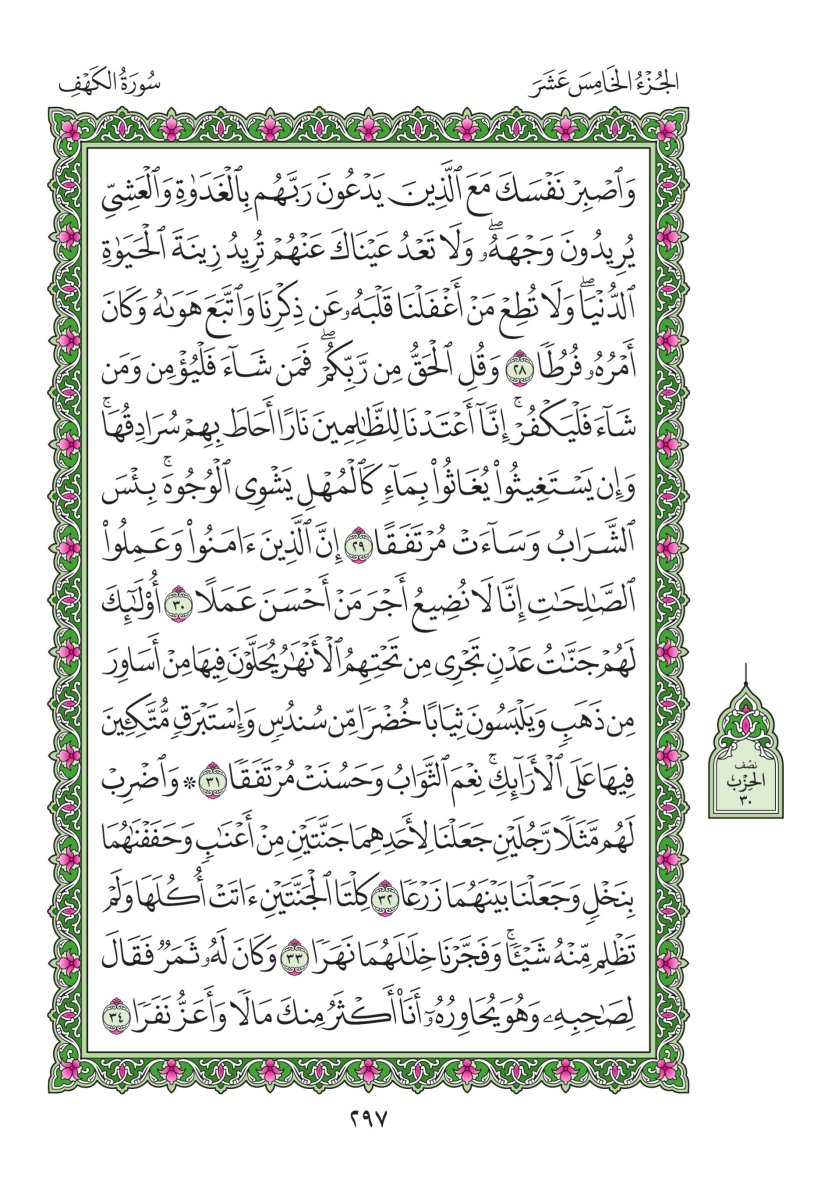 الجُزْءُ الخَامِسَ عَشَرَ
سُورَةُ الكَهْفِ
وَٱصْبِرْ نَفْسَكَ مَعَ ٱلَّذِينَ يَدْعُونَ رَبَّهُم بِٱلْغَدَوٰةِ وَٱلْعَشِيِّ
يُرِيدُونَ وَجْهَهُۥۖ وَلَا تَعْدُ عَيْنَاكَ عَنْهُمْ تُرِيدُ زِينَةَ ٱلْحَيَوٰةِ
ٱلدُّنْيَاۖ وَلَا تُطِعْ مَنْ أَغْفَلْنَا قَلْبَهُۥ عَن ذِكْرِنَا وَٱتَّبَعَ هَوَىٰهُ وَكَانَ
أَمْرُهُۥ فُرُطًا ٢٨ وَقُلِ ٱلْحَقُّ مِن رَّبِّكُمْۖ فَمَن شَآءَ فَلْيُؤْمِن وَمَن
شَآءَ فَلْيَكْفُرْۚ إِنَّآ أَعْتَدْنَا لِلظَّٰلِمِينَ نَارًا أَحَاطَ بِهِمْ سُرَادِقُهَاۚ
وَإِن يَسْتَغِيثُوا۟ يُغَاثُوا۟ بِمَآءٍ كَٱلْمُهْلِ يَشْوِى ٱلْوُجُوهَۚ بِئْسَ
ٱلشَّرَابُ وَسَآءَتْ مُرْتَفَقًا ٢٩ إِنَّ ٱلَّذِينَ ءَامَنُوا۟ وَعَمِلُوا۟
ٱلصَّٰلِحَٰتِ إِنَّا لَا نُضِيعُ أَجْرَ مَنْ أَحْسَنَ عَمَلًا ٣٠ أُو۟لَٰٓئِكَ
لَهُمْ جَنَّٰتُ عَدْنٍ تَجْرِى مِن تَحْتِهِمُ ٱلْأَنْهَٰرُ يُحَلَّوْنَ فِيهَا مِنْ أَسَاوِرَ
مِن ذَهَبٍ وَيَلْبَسُونَ ثِيَابًا خُضْرًا مِّن سُندُسٍ وَإِسْتَبْرَقٍ مُّتَّكِـِٔينَ
فِيهَا عَلَى ٱلْأَرَآئِكِۚ نِعْمَ ٱلثَّوَابُ وَحَسُنَتْ مُرْتَفَقًا ٣١ * وَٱضْرِبْ
لَهُم مَّثَلًا رَّجُلَيْنِ جَعَلْنَا لِأَحَدِهِمَا جَنَّتَيْنِ مِنْ أَعْنَٰبٍ وَحَفَفْنَٰهُمَا
بِنَخْلٍ وَجَعَلْنَا بَيْنَهُمَا زَرْعًا ٣٢ كِلْتَا ٱلْجَنَّتَيْنِ ءَاتَتْ أُكُلَهَا وَلَمْ
تَظْلِم مِّنْهُ شَيْـًٔاۚ وَفَجَّرْنَا خِلَٰلَهُمَا نَهَرًا ٣٣ وَكَانَ لَهُۥ ثَمَرٌ فَقَالَ
لِصَٰحِبِهِۦ وَهُوَ يُحَاوِرُهُۥٓ أَنَا۠ أَكْثَرُ مِنكَ مَالًا وَأَعَزُّ نَفَرًا ٣٤
نصْف
الحِزْب
٣٠
٢٩٧